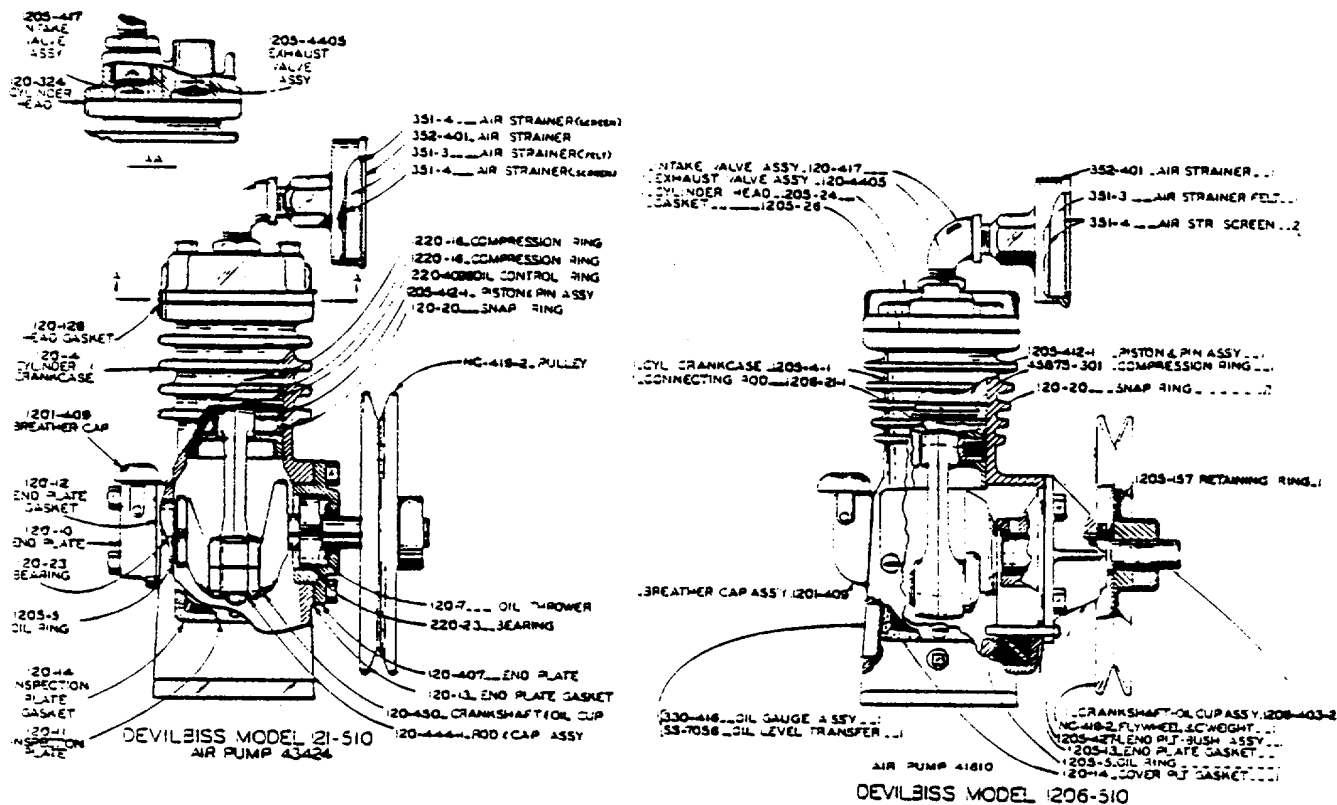 1205-417
INTAKE
VALVE
ASSY
1205-4405
EXHAUST
VALVE
ASSY
120-324
CYLINDER
HEAD
351-4 AIR STRAINER (SCREEN)
352-401 AIR STRAINER
351-3 AIR STRAINER (FELT)
351-4 AIR STRAINER (SCREEN)
220-16 COMPRESSION RING
220-16 COMPRESSION RING
220-409 OIL CONTROL RING
1205-412-1 PISTON & PIN ASSY
120-20 SNAP RING
120-126
HEAD GASKET
120-4
CYLINDER
CRANKCASE
HC-419-2 PULLEY
1201-409
BREATHER CAP
120-12
END PLATE
GASKET
120-10
END PLATE
120-23
BEARING
1205-5
OIL RING
120-14
INSPECTION
PLATE
GASKET
120-11
INSPECTION
PLATE
120-7 OIL THROWER
220-23 BEARING
120-407 END PLATE
120-13 END PLATE GASKET
120-450 CRANKSHAFT & OIL CUP
120-444-1 ROD & CAP ASSY
DEVILBISS MODEL 121-510
AIR PUMP 43424
INTAKE VALVE ASSY 120-417
EXHAUST VALVE ASSY 120-4405
CYLINDER HEAD 1205-24
GASKET 1205-26
352-401 AIR STRAINER 1
351-3 AIR STRAINER FELT 1
351-4 AIR STR SCREEN 2
CYL CRANKCASE 1205-4-1
CONNECTING ROD 1206-21-1
1205-412-1 PISTON & PIN ASSY
45875-301 COMPRESSION RING
120-20 SNAP RING
1205-157 RETAINING RING
BREATHER CAP ASSY 1201-409
330-416 OIL GAUGE ASSY
SS-7056 OIL LEVEL TRANSFER
CRANKSHAFT-OIL CUP ASSY 1206-403-2
HC-418-2 FLYWHEEL & CWEIGHT
1205-427-1 END PLT-BUSH ASSY
1205-13 END PLATE GASKET
1205-5 OIL RING
120-14 COVER PLT GASKET
AIR PUMP 41610
DEVILBISS MODEL 1206-510